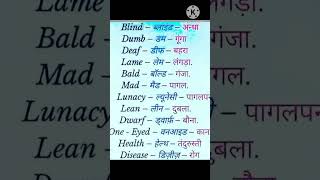 Blind – ब्लाइंड – अन्धा
Dumb – डम – गूंगा
Deaf – डीफ – बहरा
Lame – लेम – लंगड़ा.
Bald – बॉल्ड – गंजा.
Mad – मैड – पागल.
Lunacy – ल्यूनेसी – पागलपन
Lean – लीन – दुबला.
Dwarf – ड्वार्फ – बौना.
One - Eyed – वनआइड – कान
Health – हेल्थ – तंदुरुस्ती
Disease – डिज़ीज़ – रोग